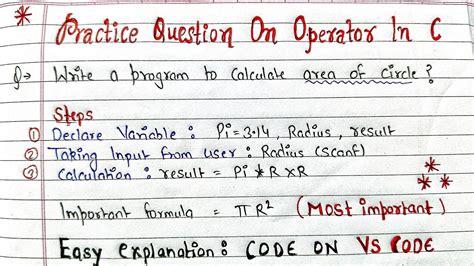 * Practice Question On Operator In C
Q→ Write a program to calculate area of circle?
Steps
① Declare Variable : Pi = 3.14, Radius, result
② Taking Input from user : Radius (scanf)
③ Calculation : result = Pi * R x R
Important formula = πR² (Most important)
Easy explanation : CODE ON VS CODE